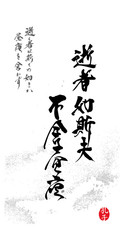 逝者如斯夫
不舎昼夜
逝く者は斯くの如きか
昼夜を舎かず
孔子